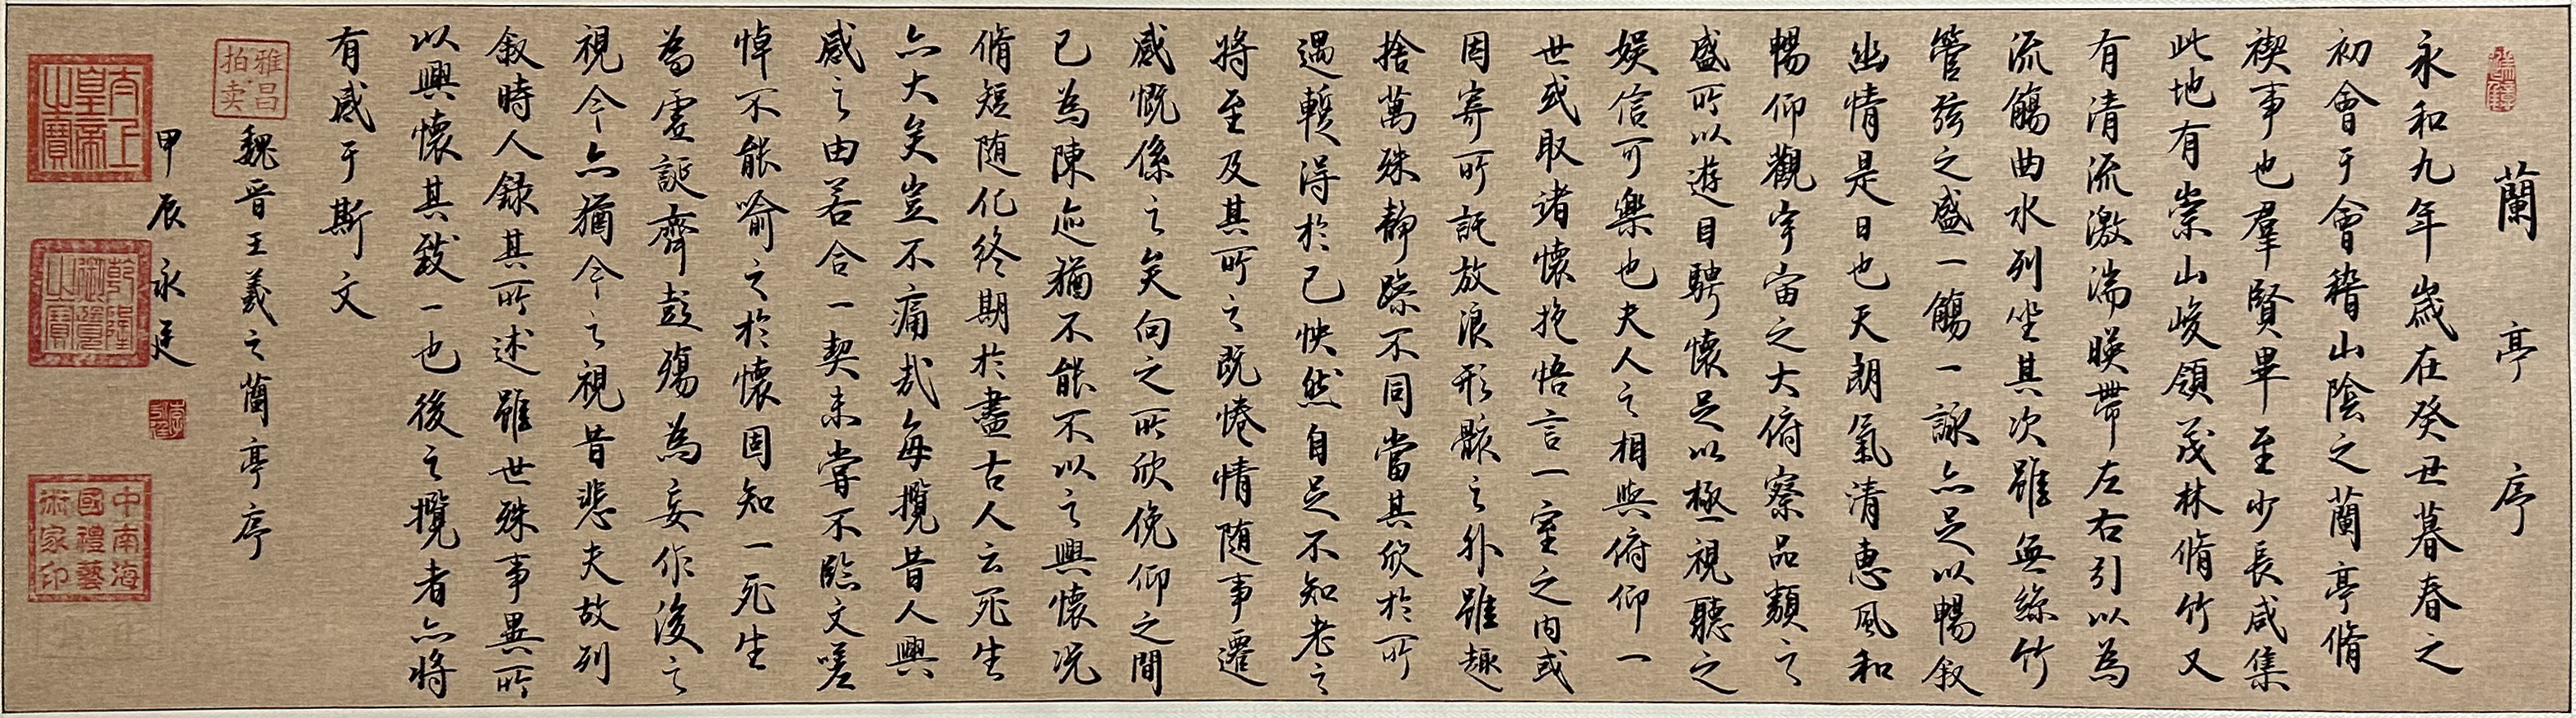 蘭亭序
永和九年歲在癸丑暮春之
初會于會稽山陰之蘭亭脩
禊事也羣賢畢至少長咸集
此地有崇山峻領茂林脩竹又
有清流激湍暎帶左右引以為
流觴曲水列坐其次雖無絲竹
管弦之盛一觴一詠亦足以暢叙
幽情是日也天朗氣清惠風和
暢仰觀宇宙之大俯察品類之
盛所以遊目騁懷足以極視聽之
娛信可樂也夫人之相與俯仰一
世或取諸懷抱悟言一室之内或
因寄所託放浪形骸之外雖趣
捨萬殊静躁不同當其欣於所
遇暫得於己怏然自足不知老之
將至及其所之既惓情随事遷
感慨係之矣向之所欣俛仰之間
已為陳迹猶不能不以之興懷况
脩短随化終期於盡古人云死生
亦大矣豈不痛哉每攬昔人興
感之由若合一契未嘗不臨文嗟
悼不能喻之於懷固知一死生
為虛誕齊彭殤為妄作後之
視今亦猶今之視昔悲夫故列
叙時人録其所述雖世殊事異所
以興懷其致一也後之攬者亦將
有感于斯文
雅昌拍卖
魏晋王羲之蘭亭序
甲辰永廷
太上皇帝之寶
乾隆御覽之寶
中南海國禮藝術家印